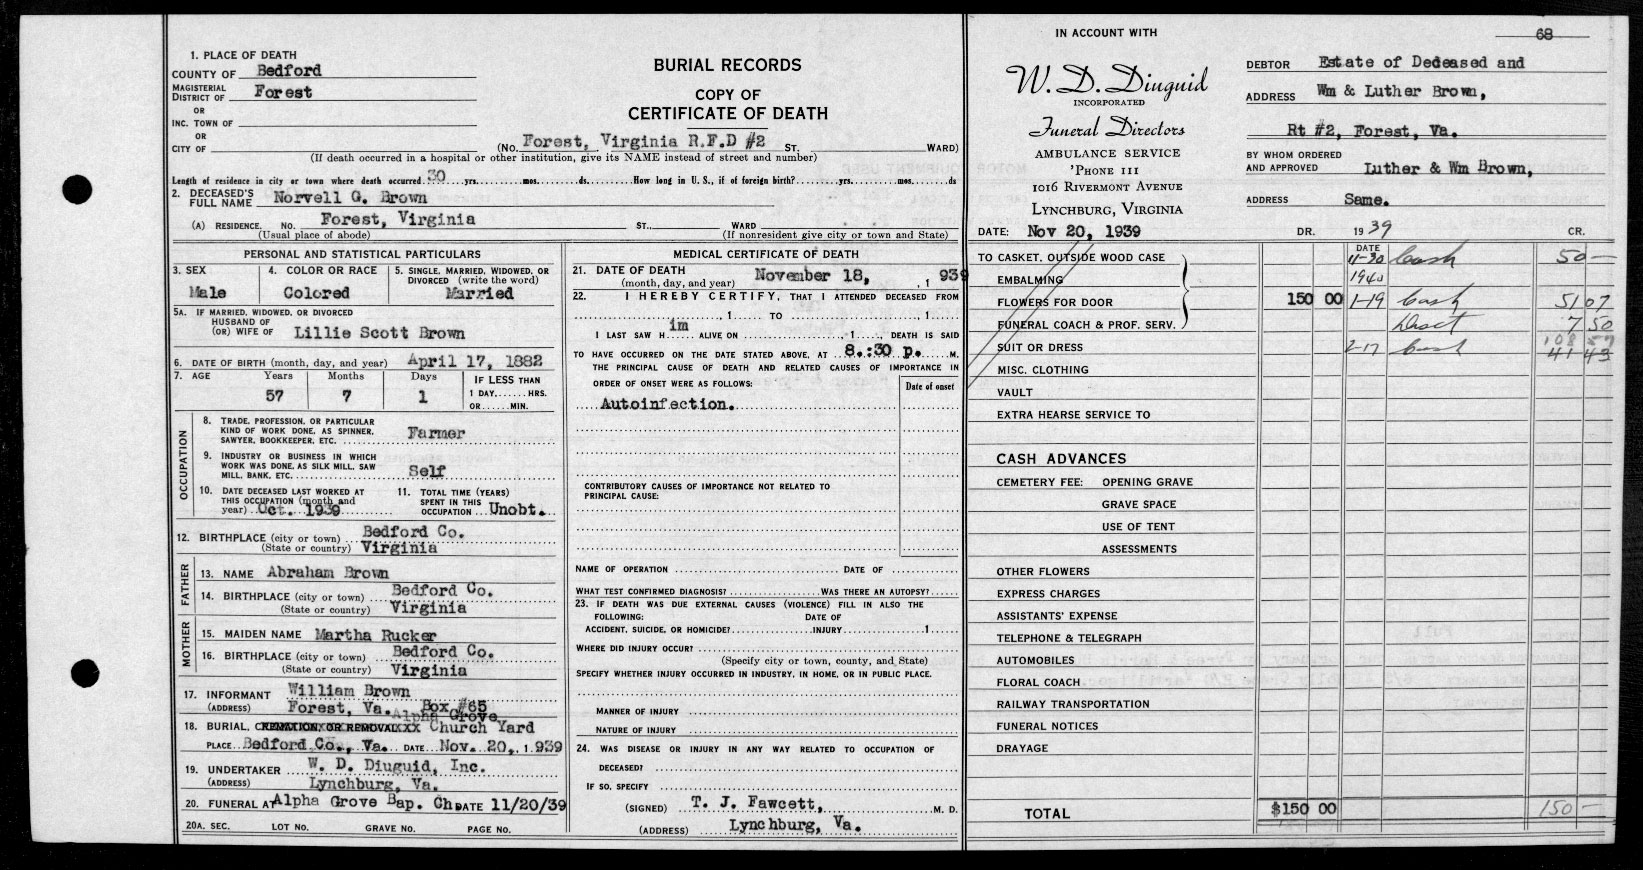 1. PLACE OF DEATH
COUNTY OF Bedford
MAGISTERIAL DISTRICT OF Forest
OR
INC. TOWN OF
OR
CITY OF
BURIAL RECORDS
COPY OF
CERTIFICATE OF DEATH
(No. Forest, Virginia R.F.D #2 ST. WARD)
(If death occurred in a hospital or other institution, give its NAME instead of street and number)
Length of residence in city or town where death occurred 30 yrs. mos. ds. How long in U. S., if of foreign birth? yrs. mos. ds
2. DECEASED'S FULL NAME Norvell G. Brown
(A) RESIDENCE. No. Forest, Virginia ST., WARD
(Usual place of abode) (If nonresident give city or town and State)
PERSONAL AND STATISTICAL PARTICULARS
3. SEX Male
4. COLOR OR RACE Colored
5. SINGLE, MARRIED, WIDOWED, OR DIVORCED (write the word) Married
5A. IF MARRIED, WIDOWED, OR DIVORCED
HUSBAND OF
(OR) WIFE OF Lillie Scott Brown
6. DATE OF BIRTH (month, day, and year) April 17, 1882
7. AGE Years Months Days IF LESS THAN
57 7 1 1 DAY, HRS.
OR MIN.
OCCUPATION
8. TRADE, PROFESSION, OR PARTICULAR
KIND OF WORK DONE, AS SPINNER,
SAWYER, BOOKKEEPER, ETC. Farmer
9. INDUSTRY OR BUSINESS IN WHICH
WORK WAS DONE, AS SILK MILL, SAW
MILL, BANK, ETC. Self
10. DATE DECEASED LAST WORKED AT
THIS OCCUPATION (month and
year) Oct. 1939
11. TOTAL TIME (YEARS)
SPENT IN THIS
OCCUPATION Unobt.
12. BIRTHPLACE (city or town) Bedford Co.
(State or country) Virginia
FATHER
13. NAME Abraham Brown
14. BIRTHPLACE (city or town) Bedford Co.
(State or country) Virginia
MOTHER
15. MAIDEN NAME Martha Rucker
16. BIRTHPLACE (city or town) Bedford Co.
(State or country) Virginia
17. INFORMANT William Brown
(ADDRESS) Forest, Va. Box #65
Alpha Grove
18. BURIAL, CREMATION, OR REMOVAL XXX Church Yard
PLACE Bedford Co., Va. DATE Nov. 20, 1939
19. UNDERTAKER W. D. Diuguid, Inc.
(ADDRESS) Lynchburg, Va.
20. FUNERAL AT Alpha Grove Bap. Ch. DATE 11/20/39
20A. SEC. LOT NO. GRAVE NO. PAGE NO.
MEDICAL CERTIFICATE OF DEATH
21. DATE OF DEATH
(month, day, and year) November 18, , 1 939
22. I HEREBY CERTIFY, THAT I ATTENDED DECEASED FROM
, 1 TO , 1
I LAST SAW H im ALIVE ON , 1 , DEATH IS SAID
TO HAVE OCCURRED ON THE DATE STATED ABOVE, AT 8.:30 p. M.
THE PRINCIPAL CAUSE OF DEATH AND RELATED CAUSES OF IMPORTANCE IN
ORDER OF ONSET WERE AS FOLLOWS: Date of onset
Autoinfection.
CONTRIBUTORY CAUSES OF IMPORTANCE NOT RELATED TO
PRINCIPAL CAUSE:
NAME OF OPERATION DATE OF
WHAT TEST CONFIRMED DIAGNOSIS? WAS THERE AN AUTOPSY?
23. IF DEATH WAS DUE EXTERNAL CAUSES (VIOLENCE) FILL IN ALSO THE
FOLLOWING: DATE OF
ACCIDENT, SUICIDE, OR HOMICIDE? INJURY 1
WHERE DID INJURY OCCUR?
(Specify city or town, county, and State)
SPECIFY WHETHER INJURY OCCURRED IN INDUSTRY, IN HOME, OR IN PUBLIC PLACE.
MANNER OF INJURY
NATURE OF INJURY
24. WAS DISEASE OR INJURY IN ANY WAY RELATED TO OCCUPATION OF
DECEASED?
IF SO, SPECIFY
(SIGNED) T. J. Fawcett, M. D.
(ADDRESS) Lynchburg, Va.
IN ACCOUNT WITH
W. D. Diuguid
INCORPORATED
Funeral Directors
AMBULANCE SERVICE
'PHONE 111
1016 RIVERMONT AVENUE
LYNCHBURG, VIRGINIA
68
DEBTOR Estate of Dedeased and
ADDRESS Wm & Luther Brown,
Rt #2, Forest, Va.
BY WHOM ORDERED
AND APPROVED Luther & Wm Brown,
ADDRESS Same.
DATE: Nov 20, 1939 DR. 1939 CR.
DATE
TO CASKET, OUTSIDE WOOD CASE 11-20 Cash 50 —
EMBALMING 1940
FLOWERS FOR DOOR 150 00 1-19 Cash 51 07
FUNERAL COACH & PROF. SERV. Disct 7 50
108 57
SUIT OR DRESS 2-17 Cash 41 43
MISC. CLOTHING
VAULT
EXTRA HEARSE SERVICE TO
CASH ADVANCES
CEMETERY FEE: OPENING GRAVE
GRAVE SPACE
USE OF TENT
ASSESSMENTS
OTHER FLOWERS
EXPRESS CHARGES
ASSISTANTS' EXPENSE
TELEPHONE & TELEGRAPH
AUTOMOBILES
FLORAL COACH
RAILWAY TRANSPORTATION
FUNERAL NOTICES
DRAYAGE
TOTAL $150 00 150 —